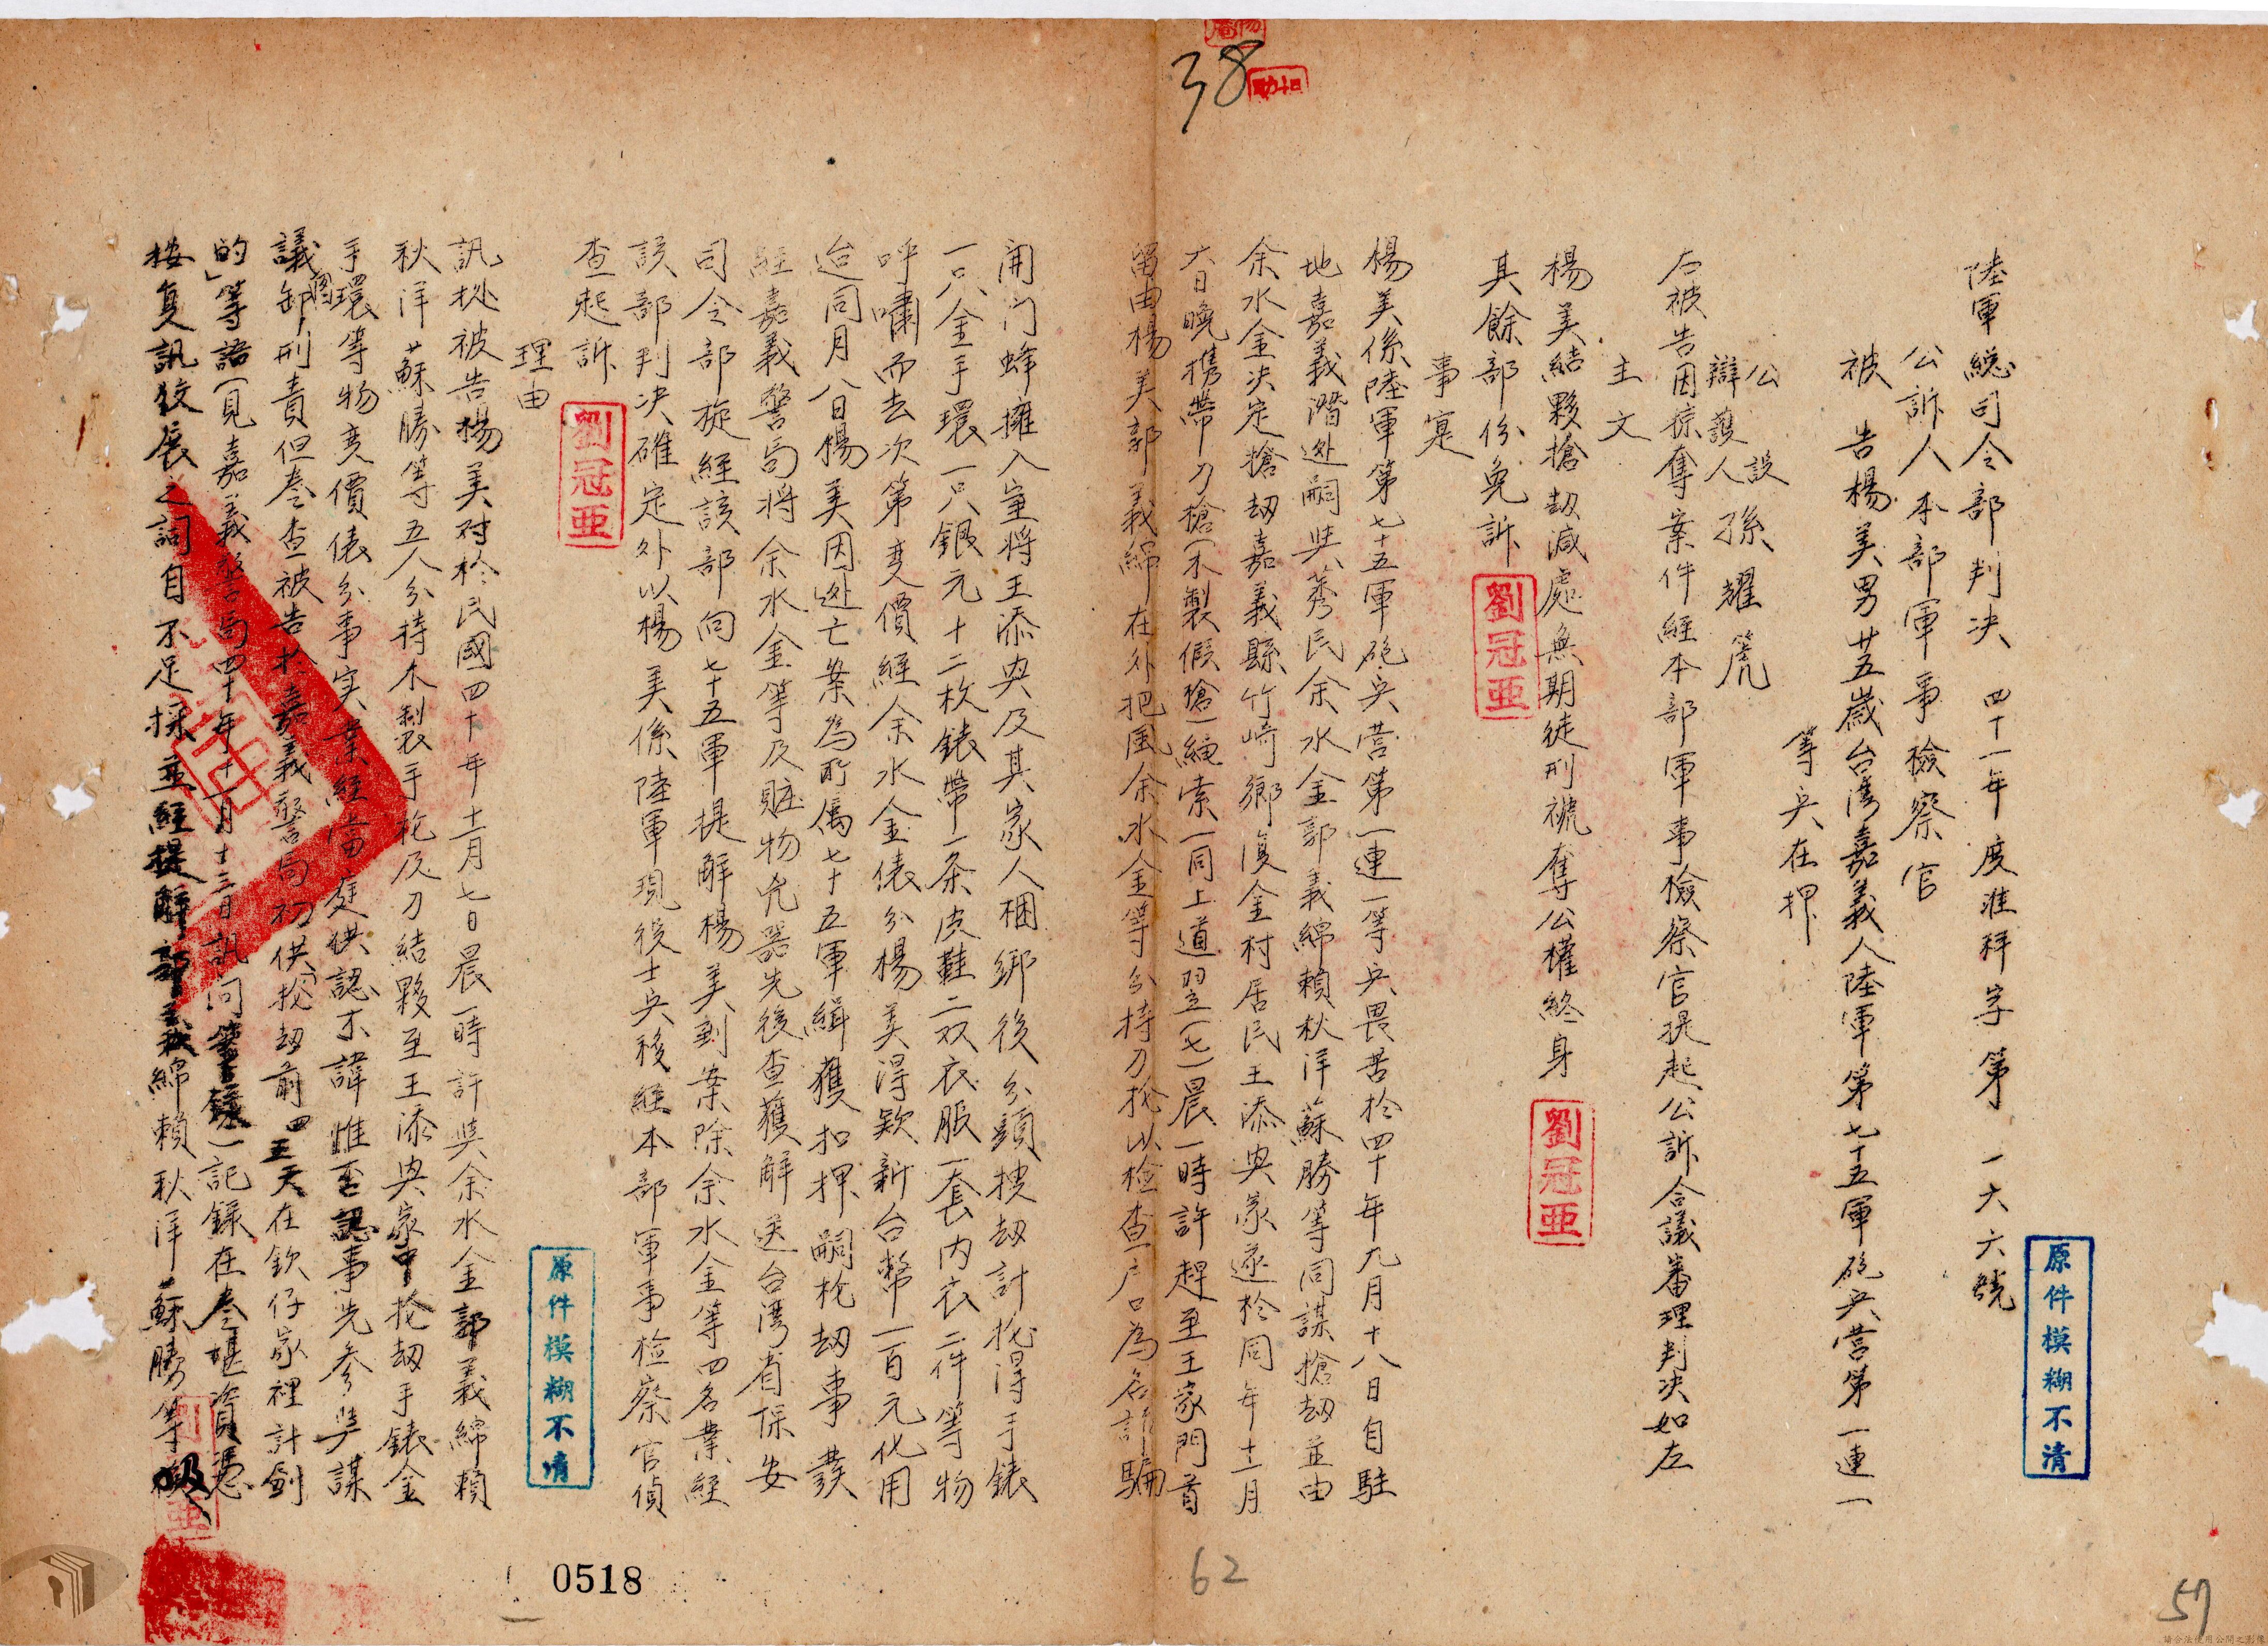 陸軍総司令部判决 四十一年度准拜字第一六六號
公訴人本部軍事檢察官
被告楊美男廿五歲台湾嘉義人陸軍第七十五軍砲兵营第一連一
等兵在押
公設
辯護人孫耀箎
右被告因掠奪案件経本部軍事檢察官提起公訴合議審理判决如左
主文
楊美結夥搶劫減處無期徒刑褫奪公權終身
其餘部份免訴
事寔
楊美係陸軍第七十五軍砲兵营第一連一等兵畏苦於四十年九月十八日自駐
地嘉義潛逃嗣與莠民余水金郭義綿賴秋洋蘇勝等同謀搶劫並由
余水金决定搶劫嘉義縣竹崎鄉復金村居民王添與家遂於同年十一月
六日晚携帶刀槍(木製假槍)繩索一同上道翌(七)晨一時許趕至王家門首
留由楊美郭義綿在外把風余水金等分持刀枪以检查户口為名詐騙
開门蜂擁入室将王添與及其家人梱綁後分頭搜劫計抢得手錶
一只金手環一只銀元十二枚錶帶一条皮鞋二双衣服一套内衣二件等物
呼嘯而去次第变價経余水金俵分楊美得欵新台幣一百元化用
迨同月八日楊美因逃亡案為所属七十五軍緝獲扣押嗣抢劫事發
経嘉義警局将余水金等及贓物兇器先後查獲解送台湾省保安
司令部旋経該部向七十五軍提解楊美到案除余水金等四名業経
該部判决確定外以楊美係陸軍現役士兵移経本部軍事检察官偵
查起訴
理由
訊據被告楊美对於民國四十年十一月七日晨一時許與余水金郭義綿賴
秋洋蘇勝等五人分持木製手枪及刀結夥至王添與家中抢劫手錶金
手環等物变價俵分事实業経當庭供認不諱惟否認事先参與謀
議圖卸刑責但卷查被告於嘉義警局初供「抢劫前四五天在欽仔家裡計劃
的」等語(見嘉義警局四十年十一月十三日訊问筆錄)記錄在卷堪資憑
按复訊狡展之詞自不足採並経提解郭義綿賴秋洋蘇勝等
劉冠亜
劉冠亜
劉冠亜
原件模糊不清
原件模糊不清
38
0518
62
57
請合法使用公開之影像